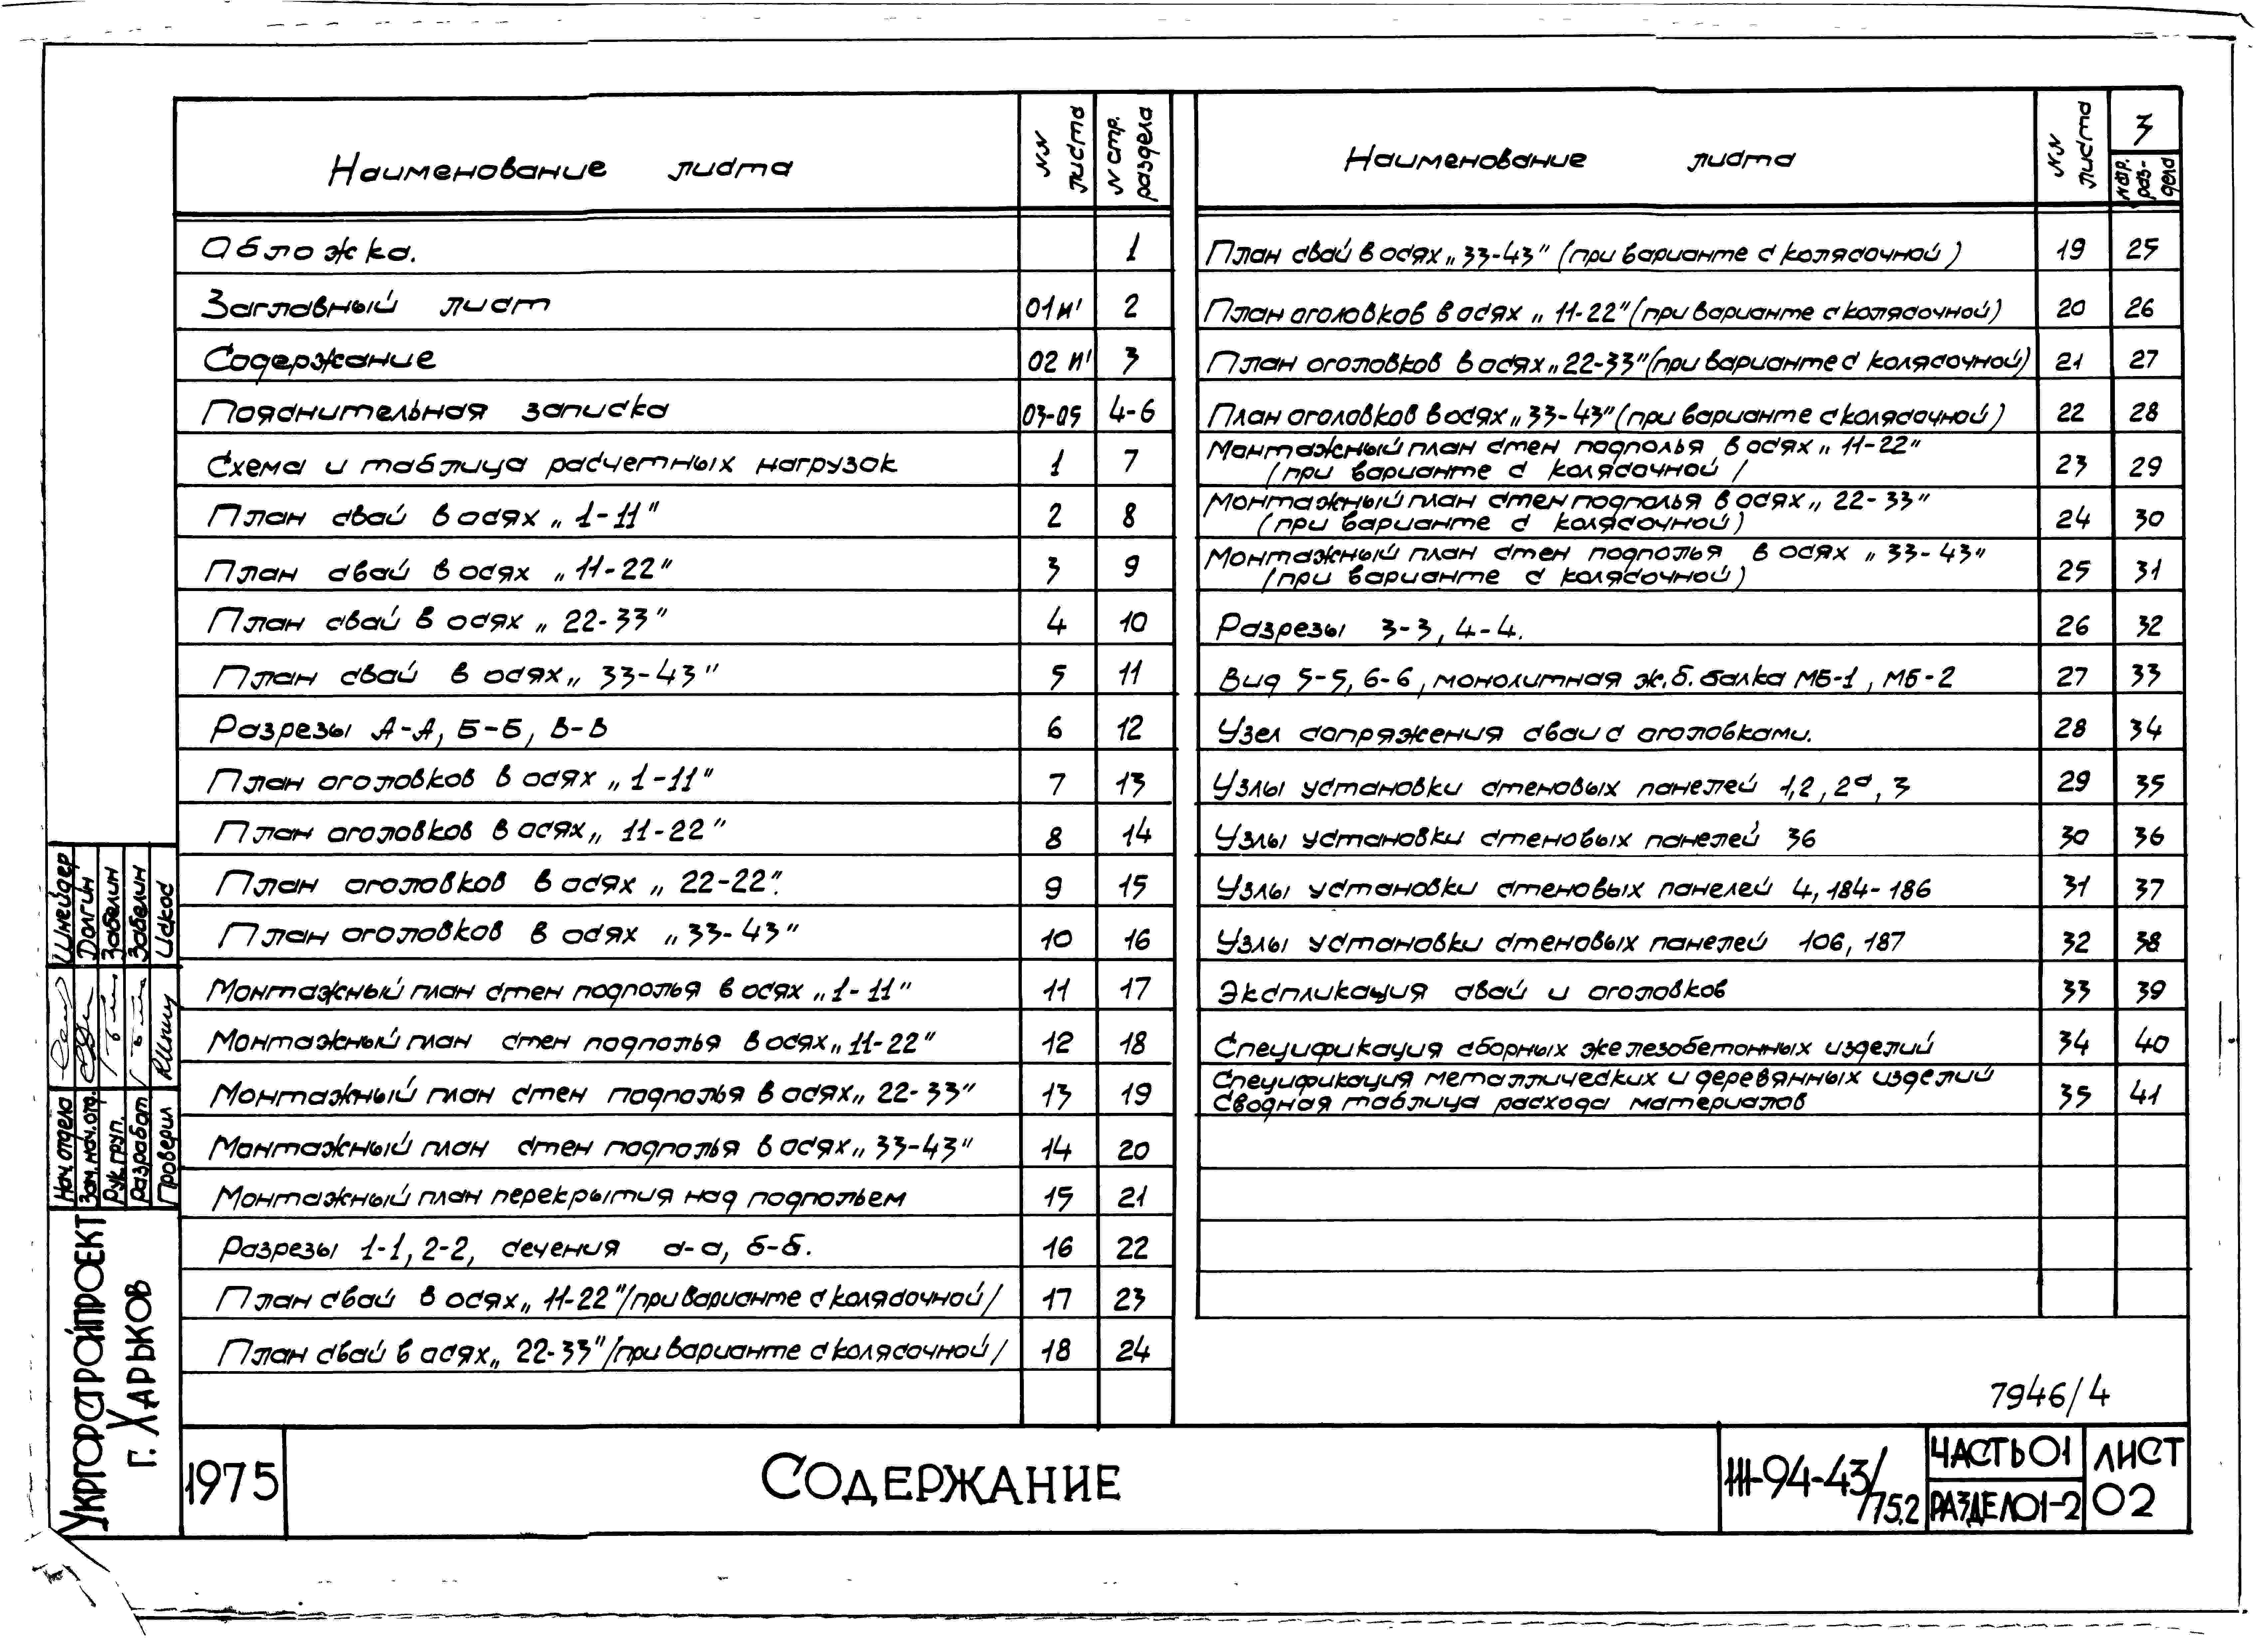 Наименование листа
NN листа
N стр. раздела
Обложка. 1
Заглавный лист 01и' 2
Содержание 02 и' 3
Пояснительная записка 03-05 4-6
Схема и таблица расчетных нагрузок 1 7
План свай в осях „1-11" 2 8
План свай в осях „11-22" 3 9
План свай в осях „22-33" 4 10
План свай в осях „33-43" 5 11
Разрезы А-А, Б-Б, В-В 6 12
План оголовков в осях „1-11" 7 13
План оголовков в осях „11-22" 8 14
План оголовков в осях „22-22". 9 15
План оголовков в осях „33-43" 10 16
Монтажный план стен подполья в осях „1-11" 11 17
Монтажный план стен подполья в осях „11-22" 12 18
Монтажный план стен подполья в осях „22-33" 13 19
Монтажный план стен подполья в осях „33-43" 14 20
Монтажный план перекрытия над подпольем 15 21
Разрезы 1-1, 2-2, сечения а-а, б-б. 16 22
План свай в осях „11-22"/при варианте с колясочной/ 17 23
План свай в осях „22-33"/при варианте с колясочной/ 18 24
Наименование листа
NN листа
3
раз-
дела
План свай в осях „33-43" (при варианте с колясочной) 19 25
План оголовков в осях „11-22" (при варианте с колясочной) 20 26
План оголовков в осях „22-33" (при варианте с колясочной) 21 27
План оголовков в осях „33-43" (при варианте с колясочной) 22 28
Монтажный план стен подполья в осях „11-22"
(при варианте с колясочной/ 23 29
Монтажный план стен подполья в осях „22-33"
(при варианте с колясочной) 24 30
Монтажный план стен подполья в осях „33-43"
(при варианте с колясочной) 25 31
Разрезы 3-3, 4-4. 26 32
Вид 5-5, 6-6, монолитная ж.б. балка МБ-1, МБ-2 27 33
Узел сопряжения сваи с оголовками. 28 34
Узлы установки стеновых панелей 1,2, 2а, 3 29 35
Узлы установки стеновых панелей 36 30 36
Узлы установки стеновых панелей 4, 184-186 31 37
Узлы установки стеновых панелей 106, 187 32 38
Экспликация свай и оголовков 33 39
Спецификация сборных железобетонных изделий 34 40
Спецификация металлических и деревянных изделий
Сводная таблица расхода материалов 35 41
7946/4
Нач. отдела Шнейдер
Зам. нач. отд. Долгин
Рук. груп. Забелин
Разработ Забелин
Проверил Исков
Укргорстройпроект
г. Харьков
1975
Содержание
III-94-43/75.2
Часть 01
Раздел 01-2
Лист
02